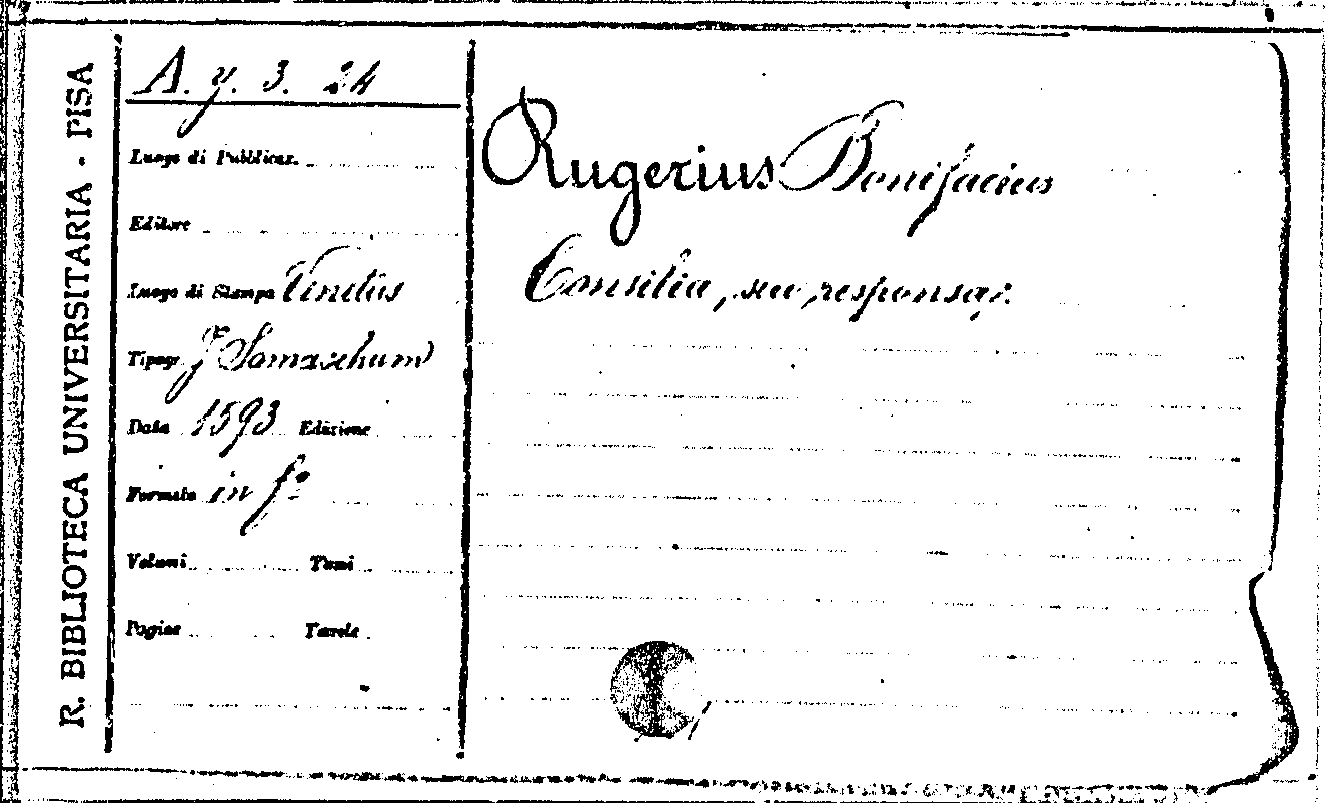 R. BIBLIOTECA UNIVERSITARIA - PISA
A. y. 3. 24
Luogo di Pubblicaz.
Editore
Luogo di Stampa Venetiis
Tipogr. J Somaschum
Data 1593 Edizione
Formato in fº
Volumi Tomi
Pagine Tavole
Rugerius Bonifacius
Consilia, seu responsa;